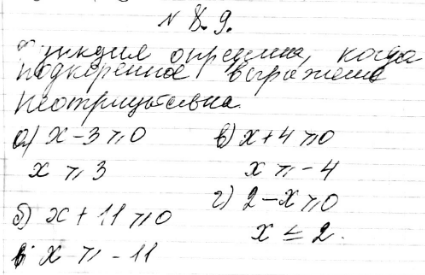 № 8.9.
Функция определена, когда
подкоренное выражение
неотрицательна.
а) x - 3 ⩾ 0
x ⩾ 3
б) x + 11 ⩾ 0
x ⩾ -11
в) x + 4 ⩾ 0
x ⩾ -4
г) 2 - x ⩾ 0
x ≤ 2.